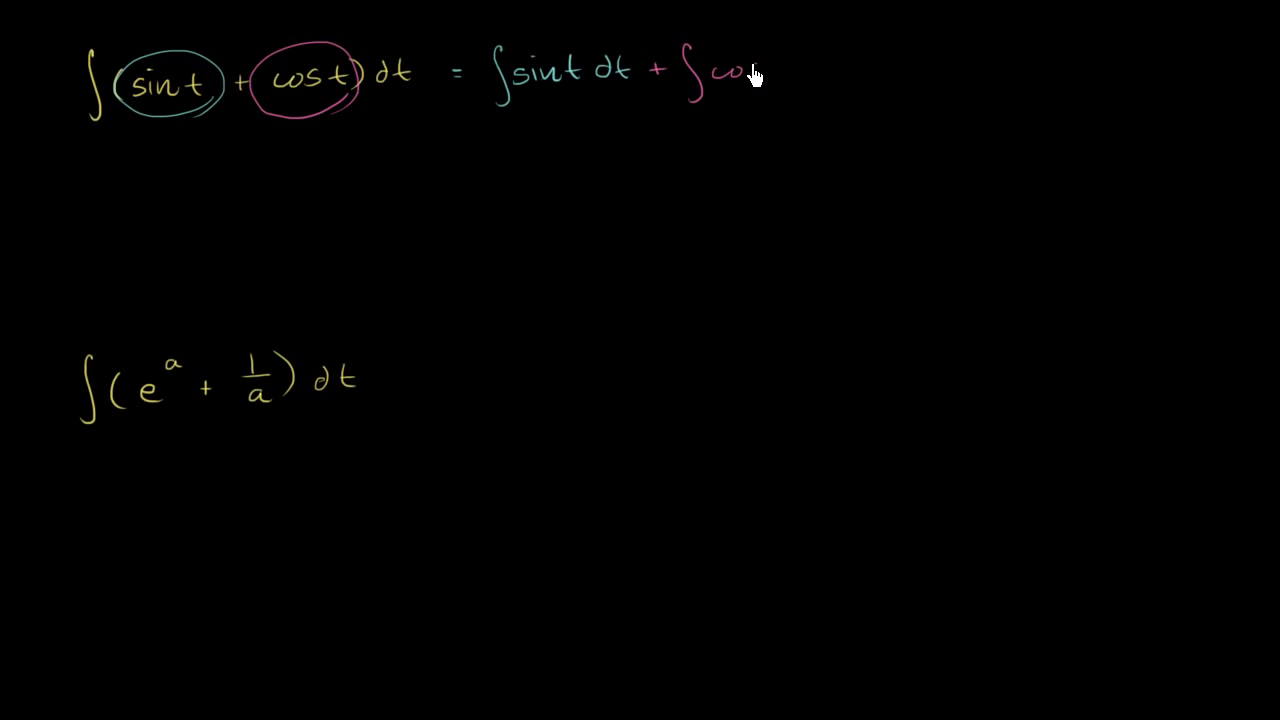 ∫(sin t + cos t) dt = ∫sin t dt + ∫cos
∫(e^a + 1/a) dt